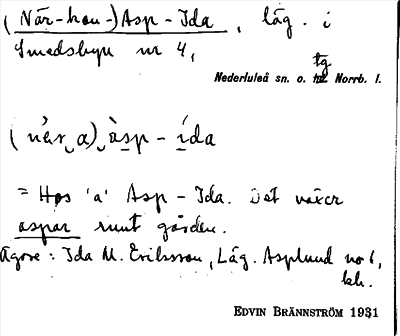 (När-hau-) Asp-Ida, läg. i
Smedsbyn nr 4,
tg
Nederluleå sn. o. Norrb. l.
(när‿a)‿àsp-ída
= Hos 'a' Asp-Ida. Det växer
aspar runt gården.
Ägare: Ida M. Eriksson, Läg. Asplund no 6,
EDVIN BRÄNNSTRÖM 1931